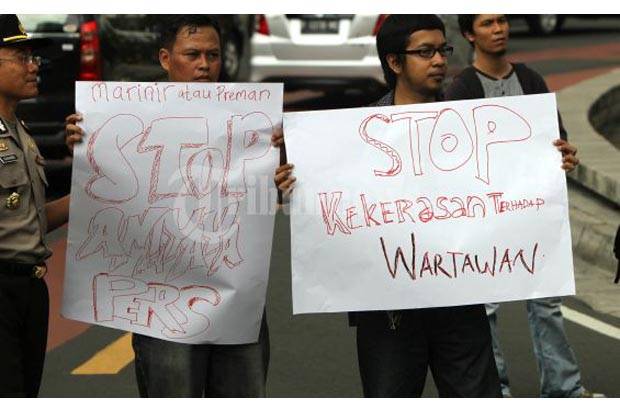 Marinir atau Preman
STOP
ANIAYA
PERS
STOP
KEKERASAN TERHADAP
WARTAWAN